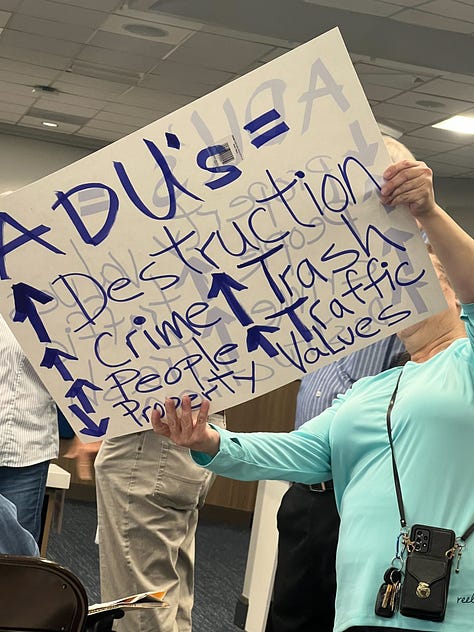 ADU's =
↑ Destruction
↑ Crime ↑ Trash
↑ People ↑ Traffic
↓ Property Values
reel